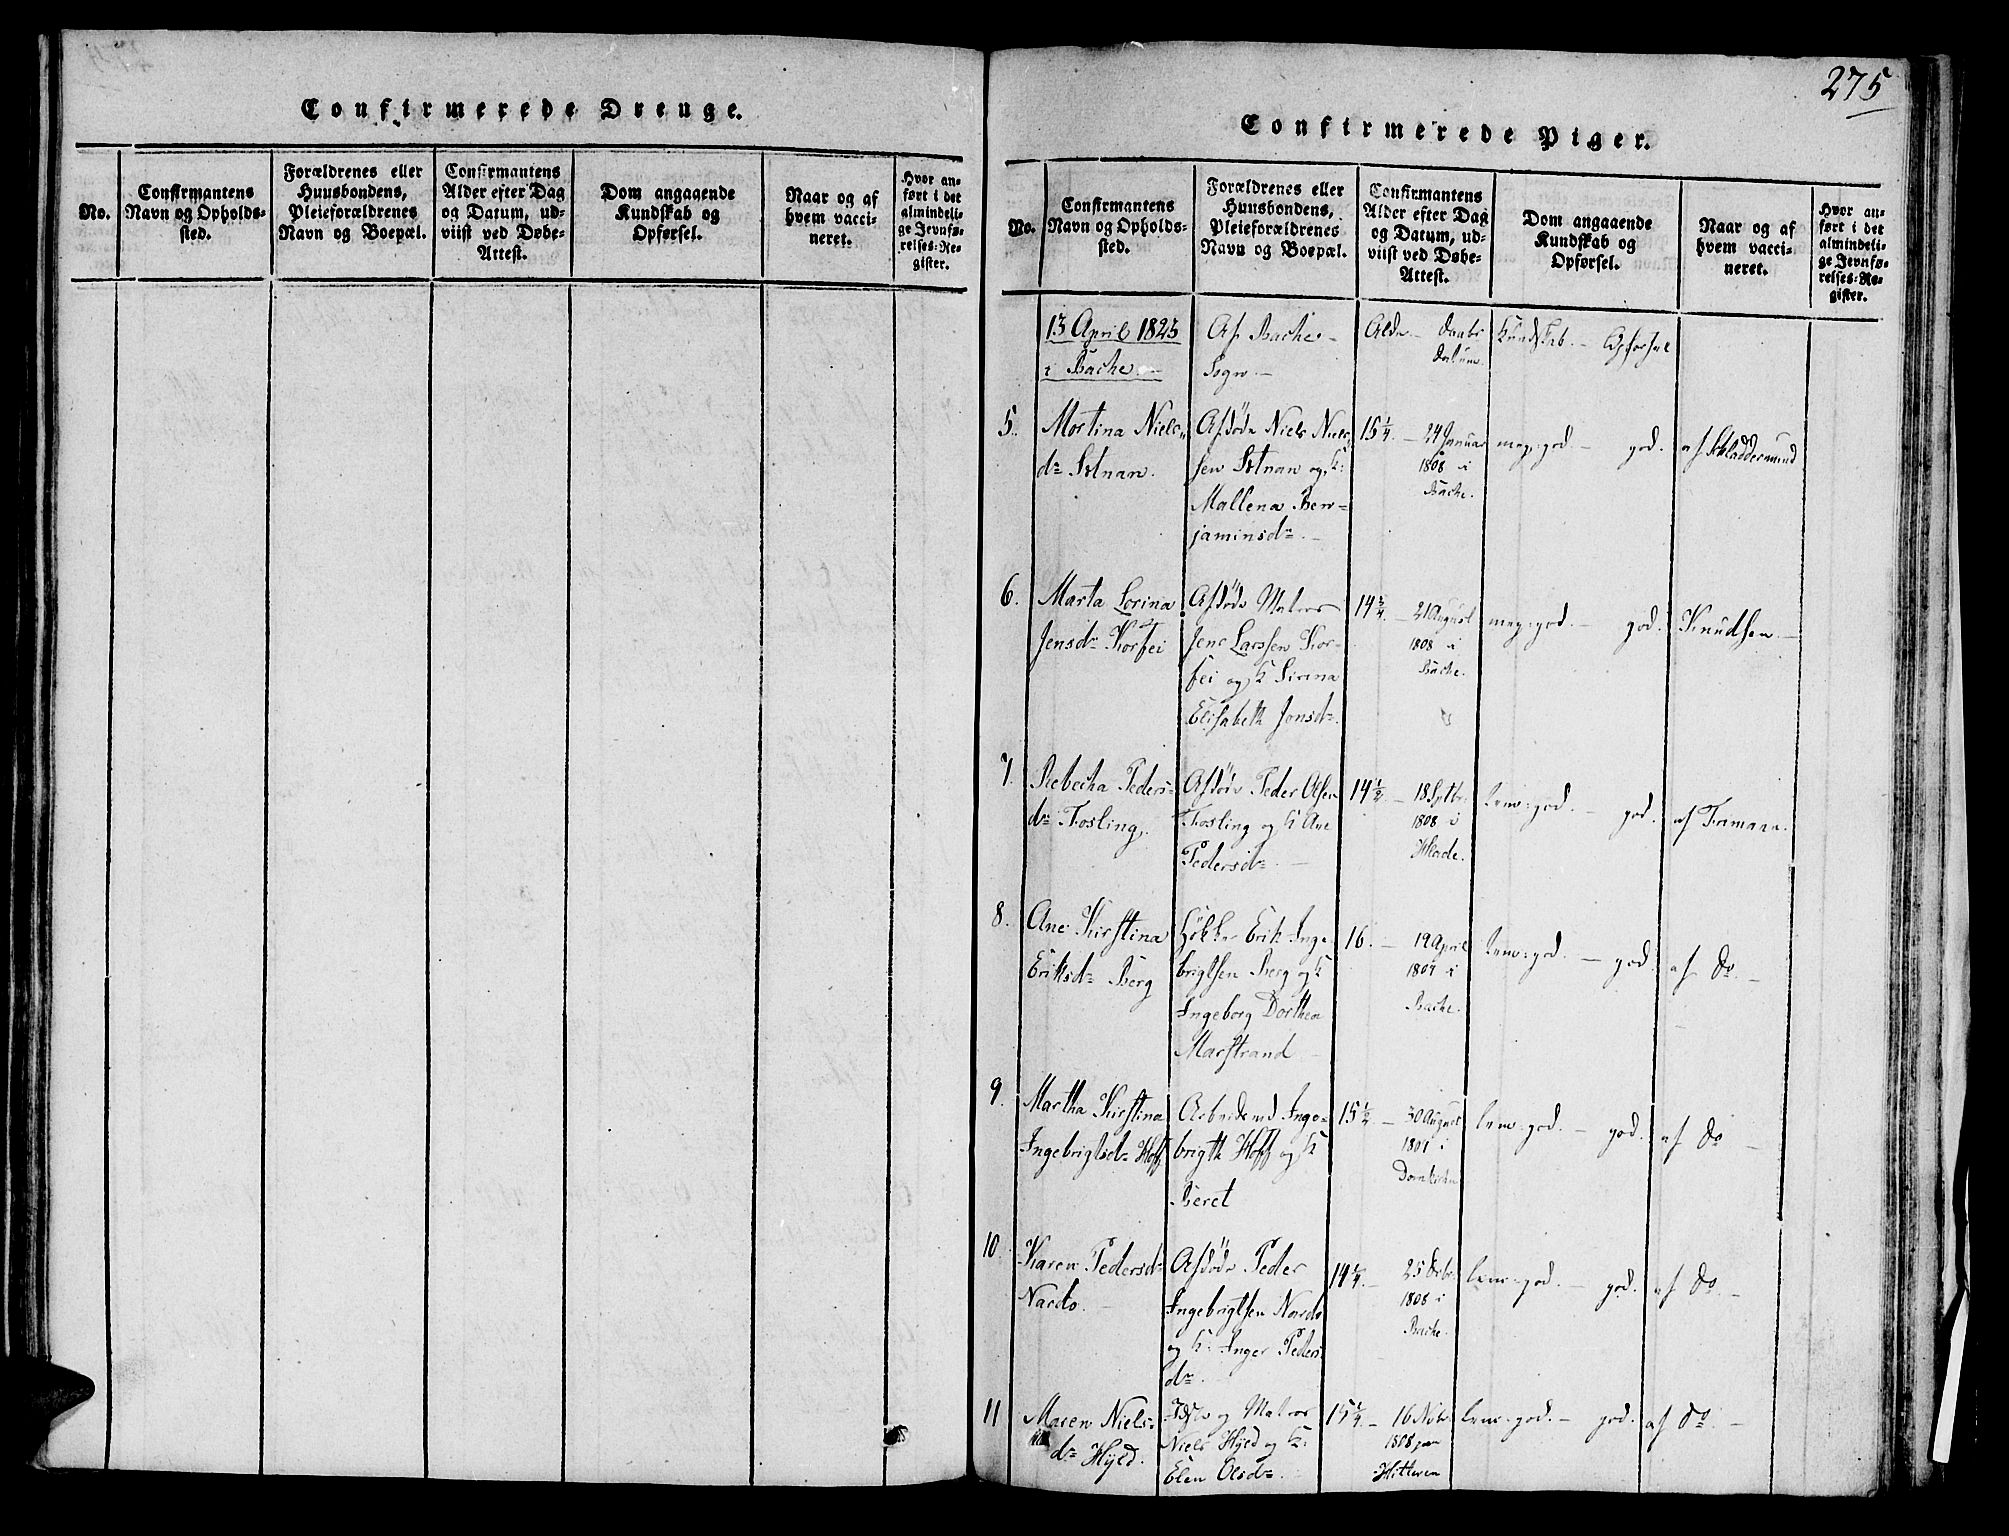 275
Confirmerede Drenge.
No.
Confirmantens
Navn og Opholds-
sted.
Forældrenes eller
Huusbondens,
Pleieforældrenes
Navn og Boepæl.
Confirmantens
Alder efter Dag
og Datum, ud-
viist ved Døbe-
Attest.
Dom angaaende
Kundskab og
Opførsel.
Naar og af
hvem vacci-
neret.
Hvor an-
ført i det
almindeli-
ge Jevnfø-
relses-Re-
gister.
Confirmerede Piger.
No.
Confirmantens
Navn og Opholds-
sted.
Forældrenes eller
Huusbondens,
Pleieforældrenes
Navn og Boepæl.
Confirmantens
Alder efter Dag
og Datum, ud-
viist ved Døbe-
Attest.
Dom angaaende
Kundskab og
Opførsel.
Naar og af
hvem vacci-
neret.
Hvor an-
ført i det
almindeli-
ge Jevnfø-
relses-Re-
gister.
13 April 1823
i Bache
Af Bache
Sogn
Alder
Daabs
datum
Kundskab. Opførsel
5.
Mortina Niels-
dr
Afdøde Niels Niel-
sen og K:
Mallena Ben-
jaminsdr
15 1/4. 24 Januar
1808 i
Bache.
meg: god. god.
af Kladdermund
6.
Marta Lorina
Jensdr Korfei
Afdøde Matros
Jens Larssen Kor-
fei og K Sirina
Elisabeth Jonsdr.
14 3/4. 21 August
1808 i
Bache.
meg: god. god.
Knudsen
7.
Rebecka Peders-
dr Fosling.
Afdøde Peder Olsen
Fosling og K Ane
Pedersdr
14 1/2 18 Septbr
1808 i
Hlade.
temv: god. god.
af Tremann.
8.
Ane Kirstina
Eriksdr Berg
Erik Inge-
brigtsen Berg og K
Ingeborg Dorthea
Marstrand
16. 19 April
1807 i
Bache.
temv: god. god.
af do.
9.
Martha Kirstina
Ingebrigtsdr Hoff
Arbeidsmd Inge-
brigtt Hoff og K
Beret
15 1/2 30 August
1807 i
Domkirken
temv: god. god.
af do
10.
Karen Pedersdr
Nardo.
Afdøde Peder
Ingebrigtsen Nardo
og K: Inger Peders-
dr.
14 1/4. 25 Decbr
1808 i
Bache.
temv: god. god.
af do.
11
Maren Niels-
dr Hyld.
og Matros
Niels Hyld og K:
Elen Olsdr
15 1/4. 16 Novbr
1808 paa
Hitteren
temv: god. god.
af do.